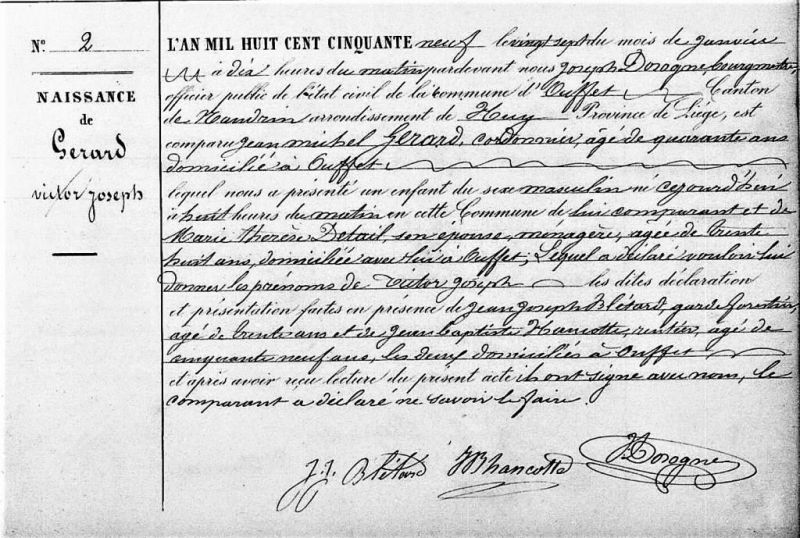 N° 2
NAISSANCE
de
Gerard
victor joseph
L'AN MIL HUIT CENT CINQUANTE neuf le vingt sept du mois de janvier
à dix heures du matin pardevant nous joseph Dorogne, bourgmestre,
officier public de l'état civil de la commune d'Ouffet Canton
de Nandrin arrondissement de Huy Province de Liége, est
comparu jean michel Gerard, cordonnier, âgé de quarante ans
domicilié à Ouffet
lequel nous a présenté un enfant du sexe masculin né cejourd'hui
à huit heures du matin en cette Commune de lui comparant et de
Marie thérèse Detail, son épouse, menagère, agée de trente
huit ans, domiciliée avec lui à Ouffet; Lequel a déclaré vouloir lui
donner les prénoms de victor joseph les dites déclaration
et présentation faites en présence de jean joseph Blétard, garde forestier,
agé de trente ans et de jean baptiste Hancotte, rentier, agé de
cinquante neuf ans, les deux domiciliés à Ouffet
et après avoir reçu lecture du présent acte ils ont signé avec nous, le
comparant a déclaré ne savoir le faire.
J.J. Blétard JB hancotte J Dorogne